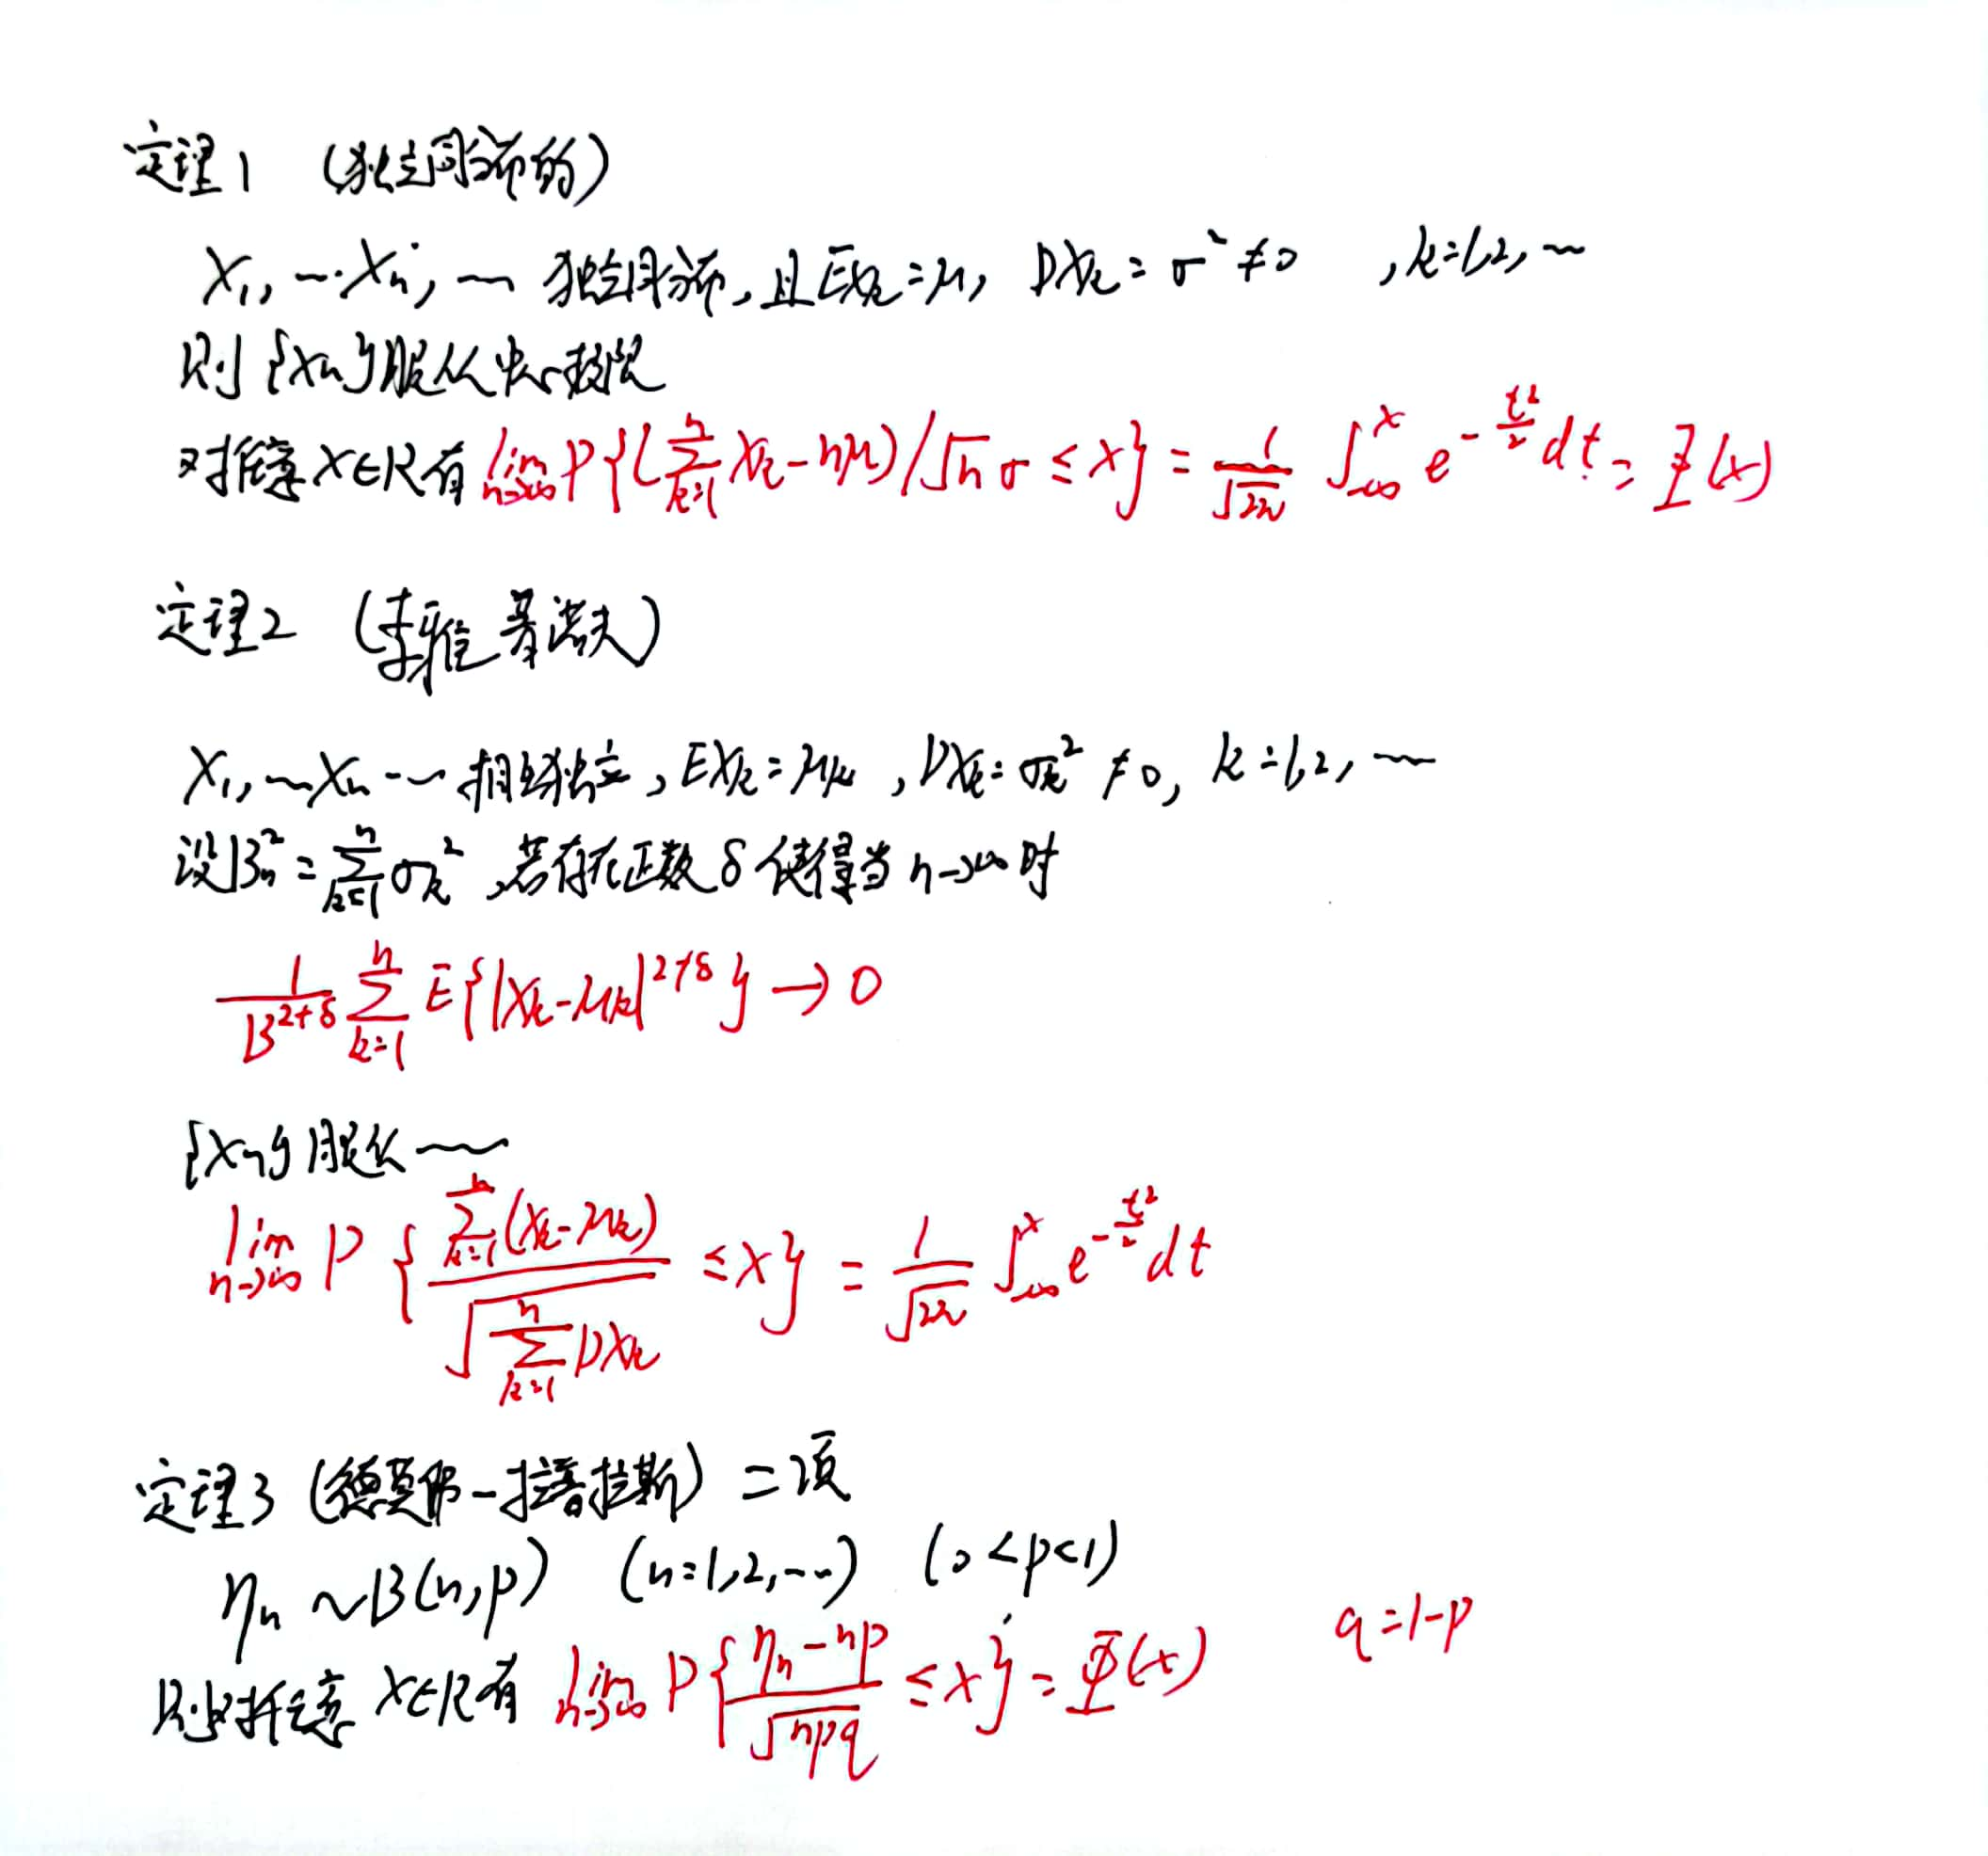 定理1 (独立同分布的)
X₁, …Xₙ, … 独立同分布, 且EXₖ=μ, DXₖ=σ²≠0 , k=1,2, …
则{Xₙ}服从中心极限
对任意X∈R有 lim n→∞ P{(∑ₖ₌₁ⁿ Xₖ-nμ)/√n σ ≤x} = 1/√2π ∫₋∞ˣ e^(-t²/2) dt = Φ(x)
定理2 (李雅普诺夫)
X₁, …Xₙ … 相互独立, EXₖ=μₖ, DXₖ=σₖ²≠0, k=1,2, …
设Bₙ²=∑ₖ₌₁ⁿ σₖ², 若存在正数δ使得当n→∞时
1/B^(2+δ) ∑ₖ₌₁ⁿ E{|Xₖ-μₖ|^(2+δ)} → 0
{Xₙ}服从 …
lim n→∞ P {∑ₖ₌₁ⁿ(Xₖ-μₖ) / √∑ₖ₌₁ⁿ DXₖ ≤x} = 1/√2π ∫₋∞ˣ e^(-t²/2) dt
定理3 (德莫弗-拉普拉斯) 二项
ηₙ ~B(n,p) (n=1,2,…) (0<p<1)
q=1-p
则对任意X∈R有 lim n→∞ P{(ηₙ-np)/√npq ≤x} = Φ(x)